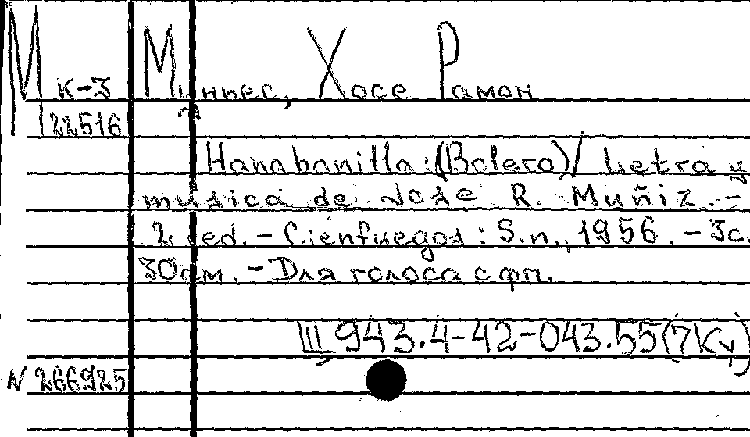 М К-3 Миньес, Хосе Рамон
22516
Hanabanilla: (Bolero)/ Letra y
música de José R. Muñiz.-
2 ed. - Cienfuegos: S.n., 1956. - 3с.
30см. - Для голоса с фп.
Ш 943.4-42-043.55(7Ку)
N 266925